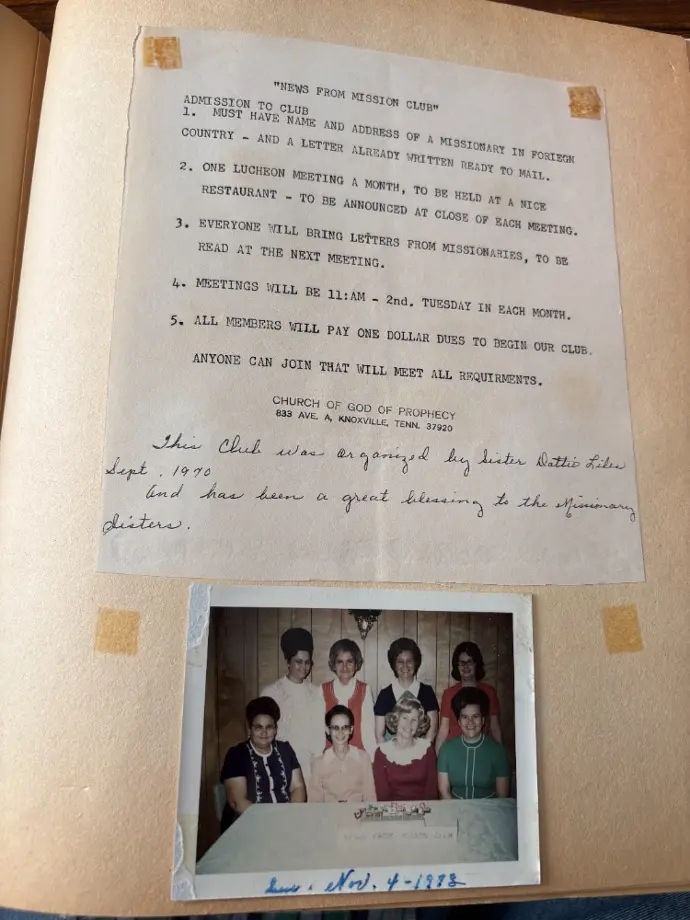 "NEWS FROM MISSION CLUB"
ADMISSION TO CLUB
1. MUST HAVE NAME AND ADDRESS OF A MISSIONARY IN FORIEGN
COUNTRY - AND A LETTER ALREADY WRITTEN READY TO MAIL.
2. ONE LUCHEON MEETING A MONTH, TO BE HELD AT A NICE
RESTAURANT - TO BE ANNOUNCED AT CLOSE OF EACH MEETING.
3. EVERYONE WILL BRING LETTERS FROM MISSIONARIES, TO BE
READ AT THE NEXT MEETING.
4. MEETINGS WILL BE 11:AM - 2nd. TUESDAY IN EACH MONTH.
5. ALL MEMBERS WILL PAY ONE DOLLAR DUES TO BEGIN OUR CLUB.
ANYONE CAN JOIN THAT WILL MEET ALL REQUIRMENTS.
CHURCH OF GOD OF PROPHECY
833 AVE. A, KNOXVILLE, TENN. 37920
This Club was organized by Sister Dattie Liles
Sept. 1970
and has been a great blessing to the Missionary
Sisters.
NEWS FROM MISSION CLUB
Nov. 4-1973